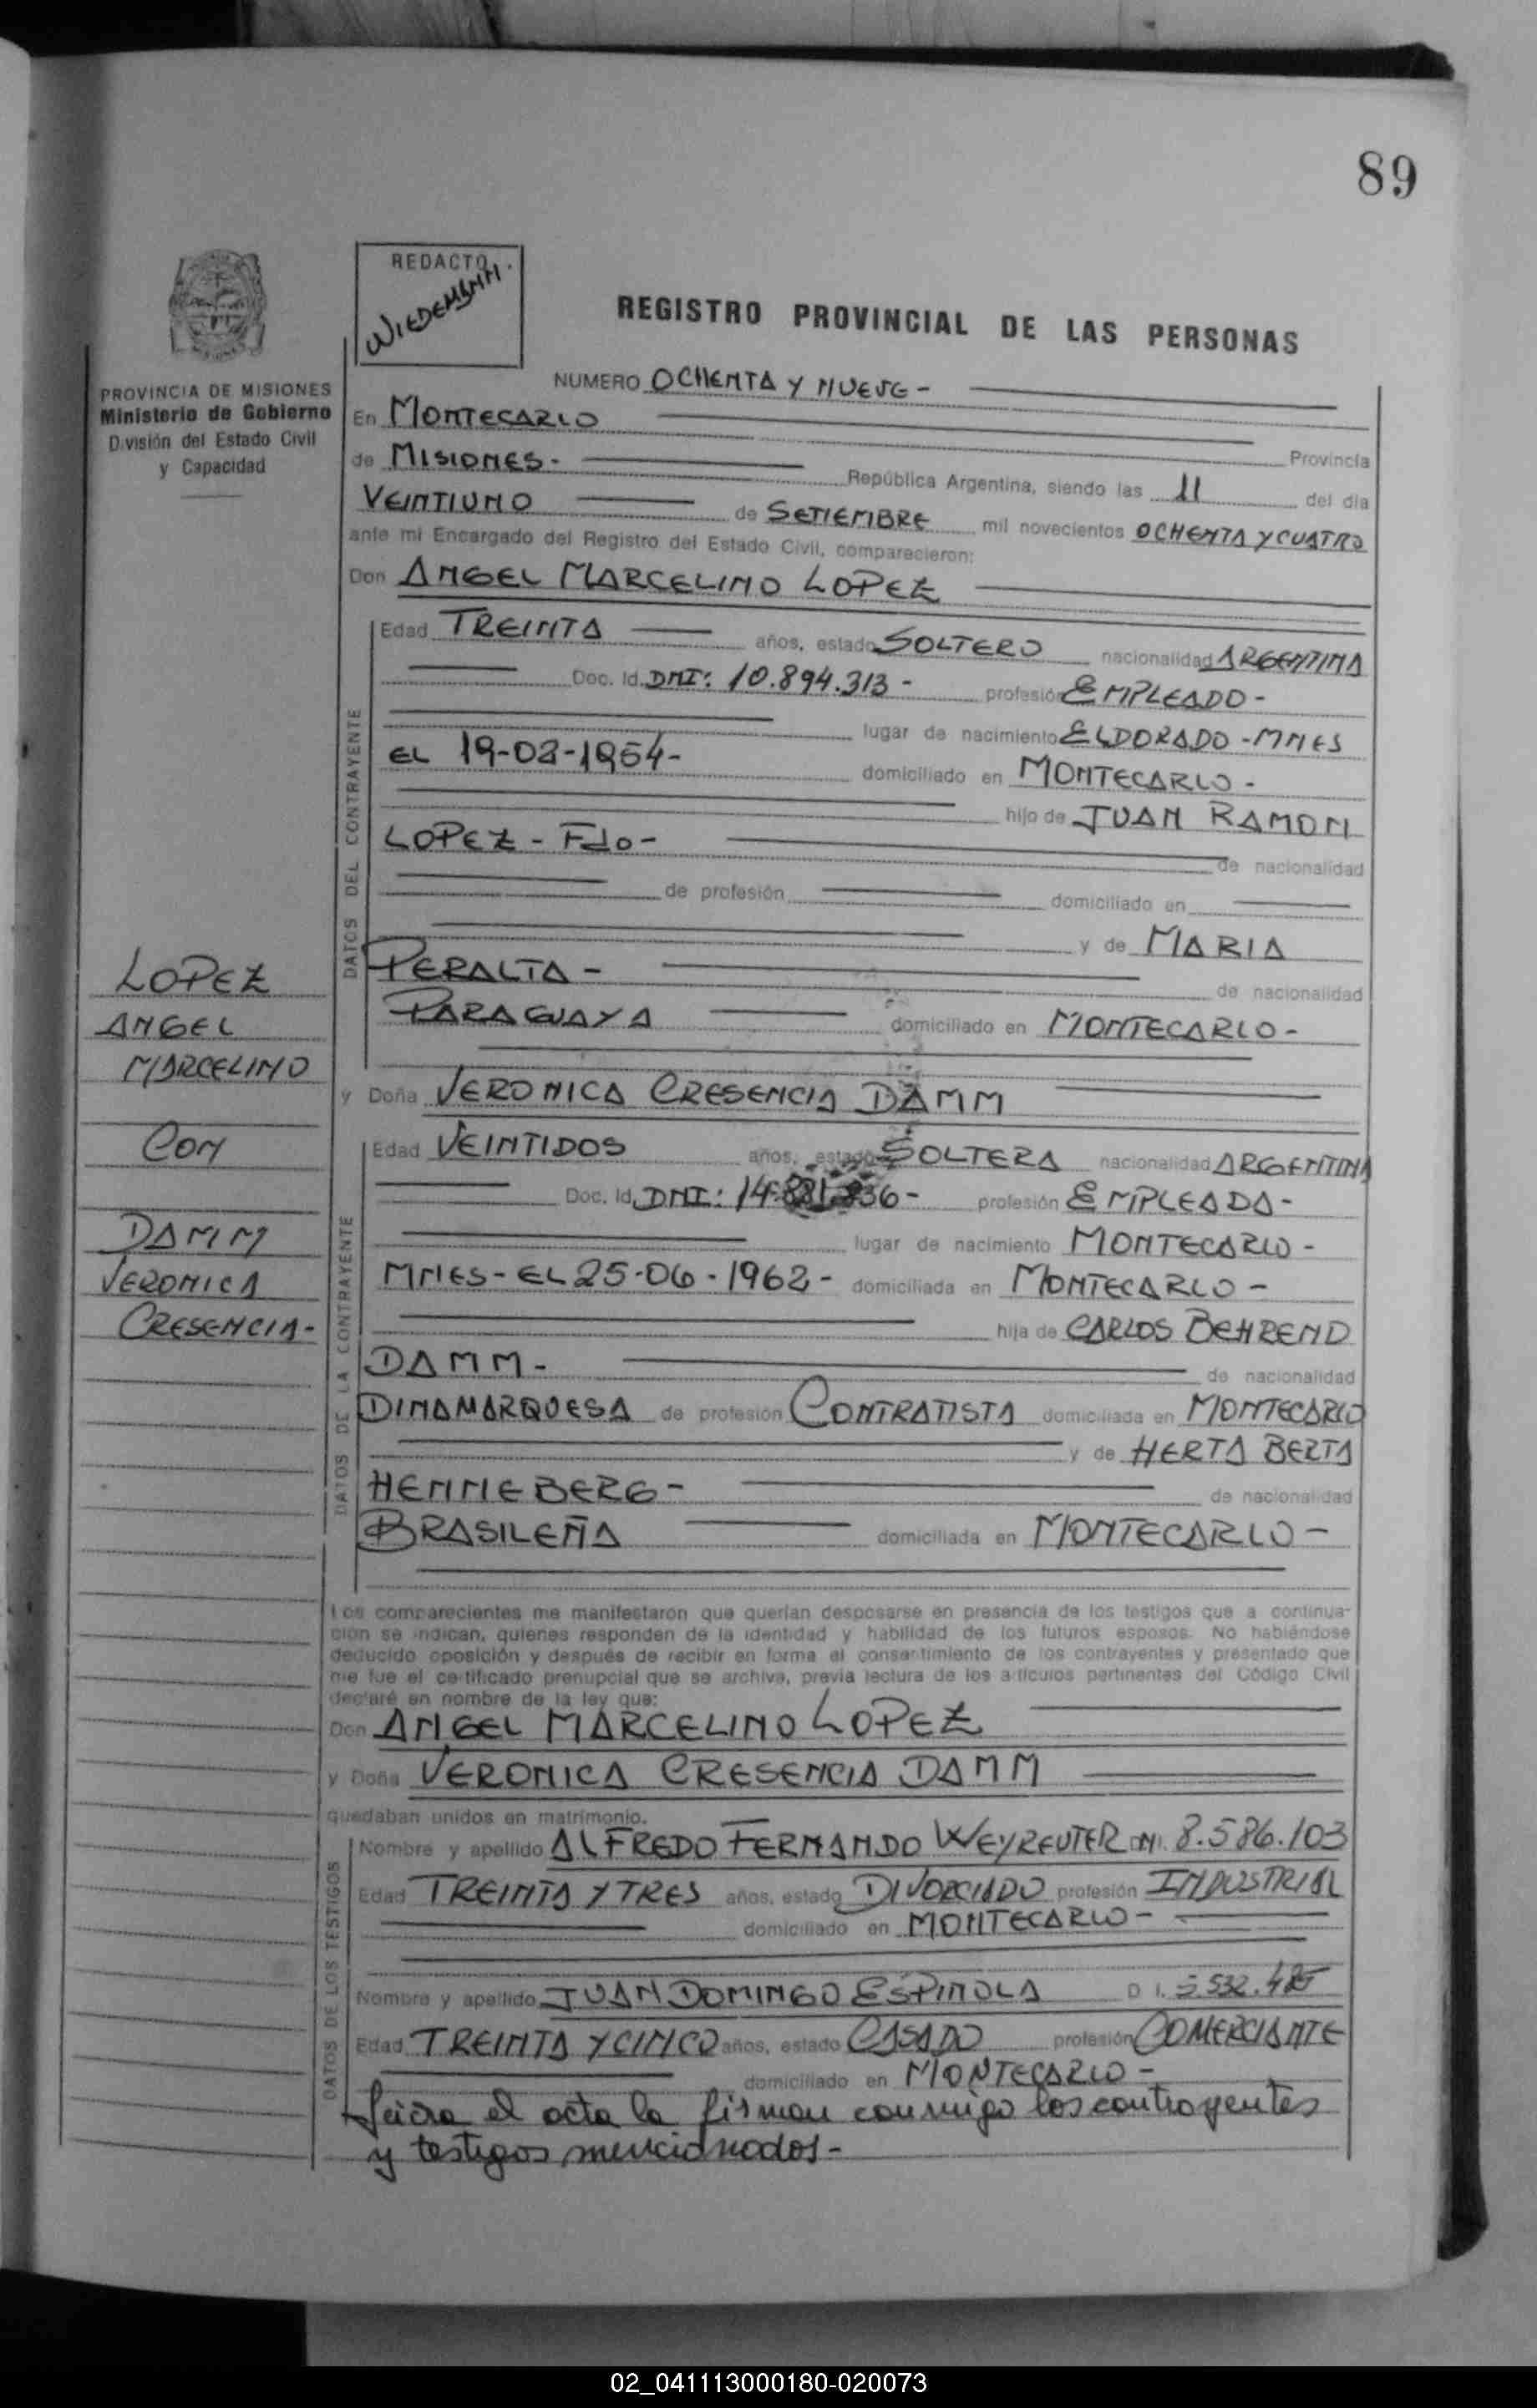 89
REDACTO
WIEDEMANN
REGISTRO PROVINCIAL DE LAS PERSONAS
PROVINCIA DE MISIONES
Ministerio de Gobierno
División del Estado Civil
y Capacidad
NUMERO OCHENTA Y NUEVE -
En MONTECARLO
Provincia
de MISIONES -
República Argentina, siendo las 11 del día
VEINTIUNO de SETIEMBRE mil novecientos OCHENTA Y CUATRO
ante mi Encargado del Registro del Estado Civil, comparecieron:
Don ANGEL MARCELINO LOPEZ
DATOS DEL CONTRAYENTE
Edad TREINTA años, estado SOLTERO nacionalidad ARGENTINA
Doc. Id. DNI: 10.894.313 - profesión EMPLEADO -
lugar de nacimiento ELDORADO - MNES
EL domiciliado en MONTECARLO -
hijo de JUAN RAMON
LOPEZ - Fdo -
de nacionalidad
de profesión domiciliado en
y de MARIA
PERALTA -
de nacionalidad
PARAGUAYA domiciliado en MONTECARLO -
LOPEZ
ANGEL
MARCELINO
CON
DAMM
VERONICA
CRESENCIA -
y Doña VERONICA CRESENCIA DAMM
DATOS DE LA CONTRAYENTE
Edad VEINTIDOS años, estado SOLTERA nacionalidad ARGENTINA
Doc. Id. DNI: profesión EMPLEADA -
lugar de nacimiento MONTECARLO -
MNES - EL 25-06-1962 - domiciliada en MONTECARLO -
hija de CARLOS BEHREND
DAMM -
de nacionalidad
DINAMARQUESA de profesión CONTRATISTA domiciliada en MONTECARLO
y de HERTA BERTA
HENNEBERG -
de nacionalidad
BRASILEÑA domiciliada en MONTECARLO -
Los comparecientes me manifestaron que querían desposarse en presencia de los testigos que a continua-
ción se indican, quienes responden de la identidad y habilidad de los futuros esposos. No habiéndose
deducido oposición y después de recibir en forma el consentimiento de los contrayentes y presentado que
me fue el certificado prenupcial que se archiva, previa lectura de los artículos pertinentes del Código Civil
declaré en nombre de la ley que:
Don ANGEL MARCELINO LOPEZ
y Doña VERONICA CRESENCIA DAMM
quedaban unidos en matrimonio.
DATOS DE LOS TESTIGOS
Nombre y apellido ALFREDO FERNANDO WEYREUTER DNI. 8.586.103
Edad TREINTA Y TRES años, estado DIVORCIADO profesión INDUSTRIAL
domiciliado en MONTECARLO -
Nombre y apellido JUAN DOMINGO ESPINOLA D.I.
Edad TREINTA Y CINCO años, estado CASADO profesión COMERCIANTE
domiciliado en MONTECARLO -
el acta la firman conmigo los contrayentes
y testigos mencionados -
02_041113000180-020073